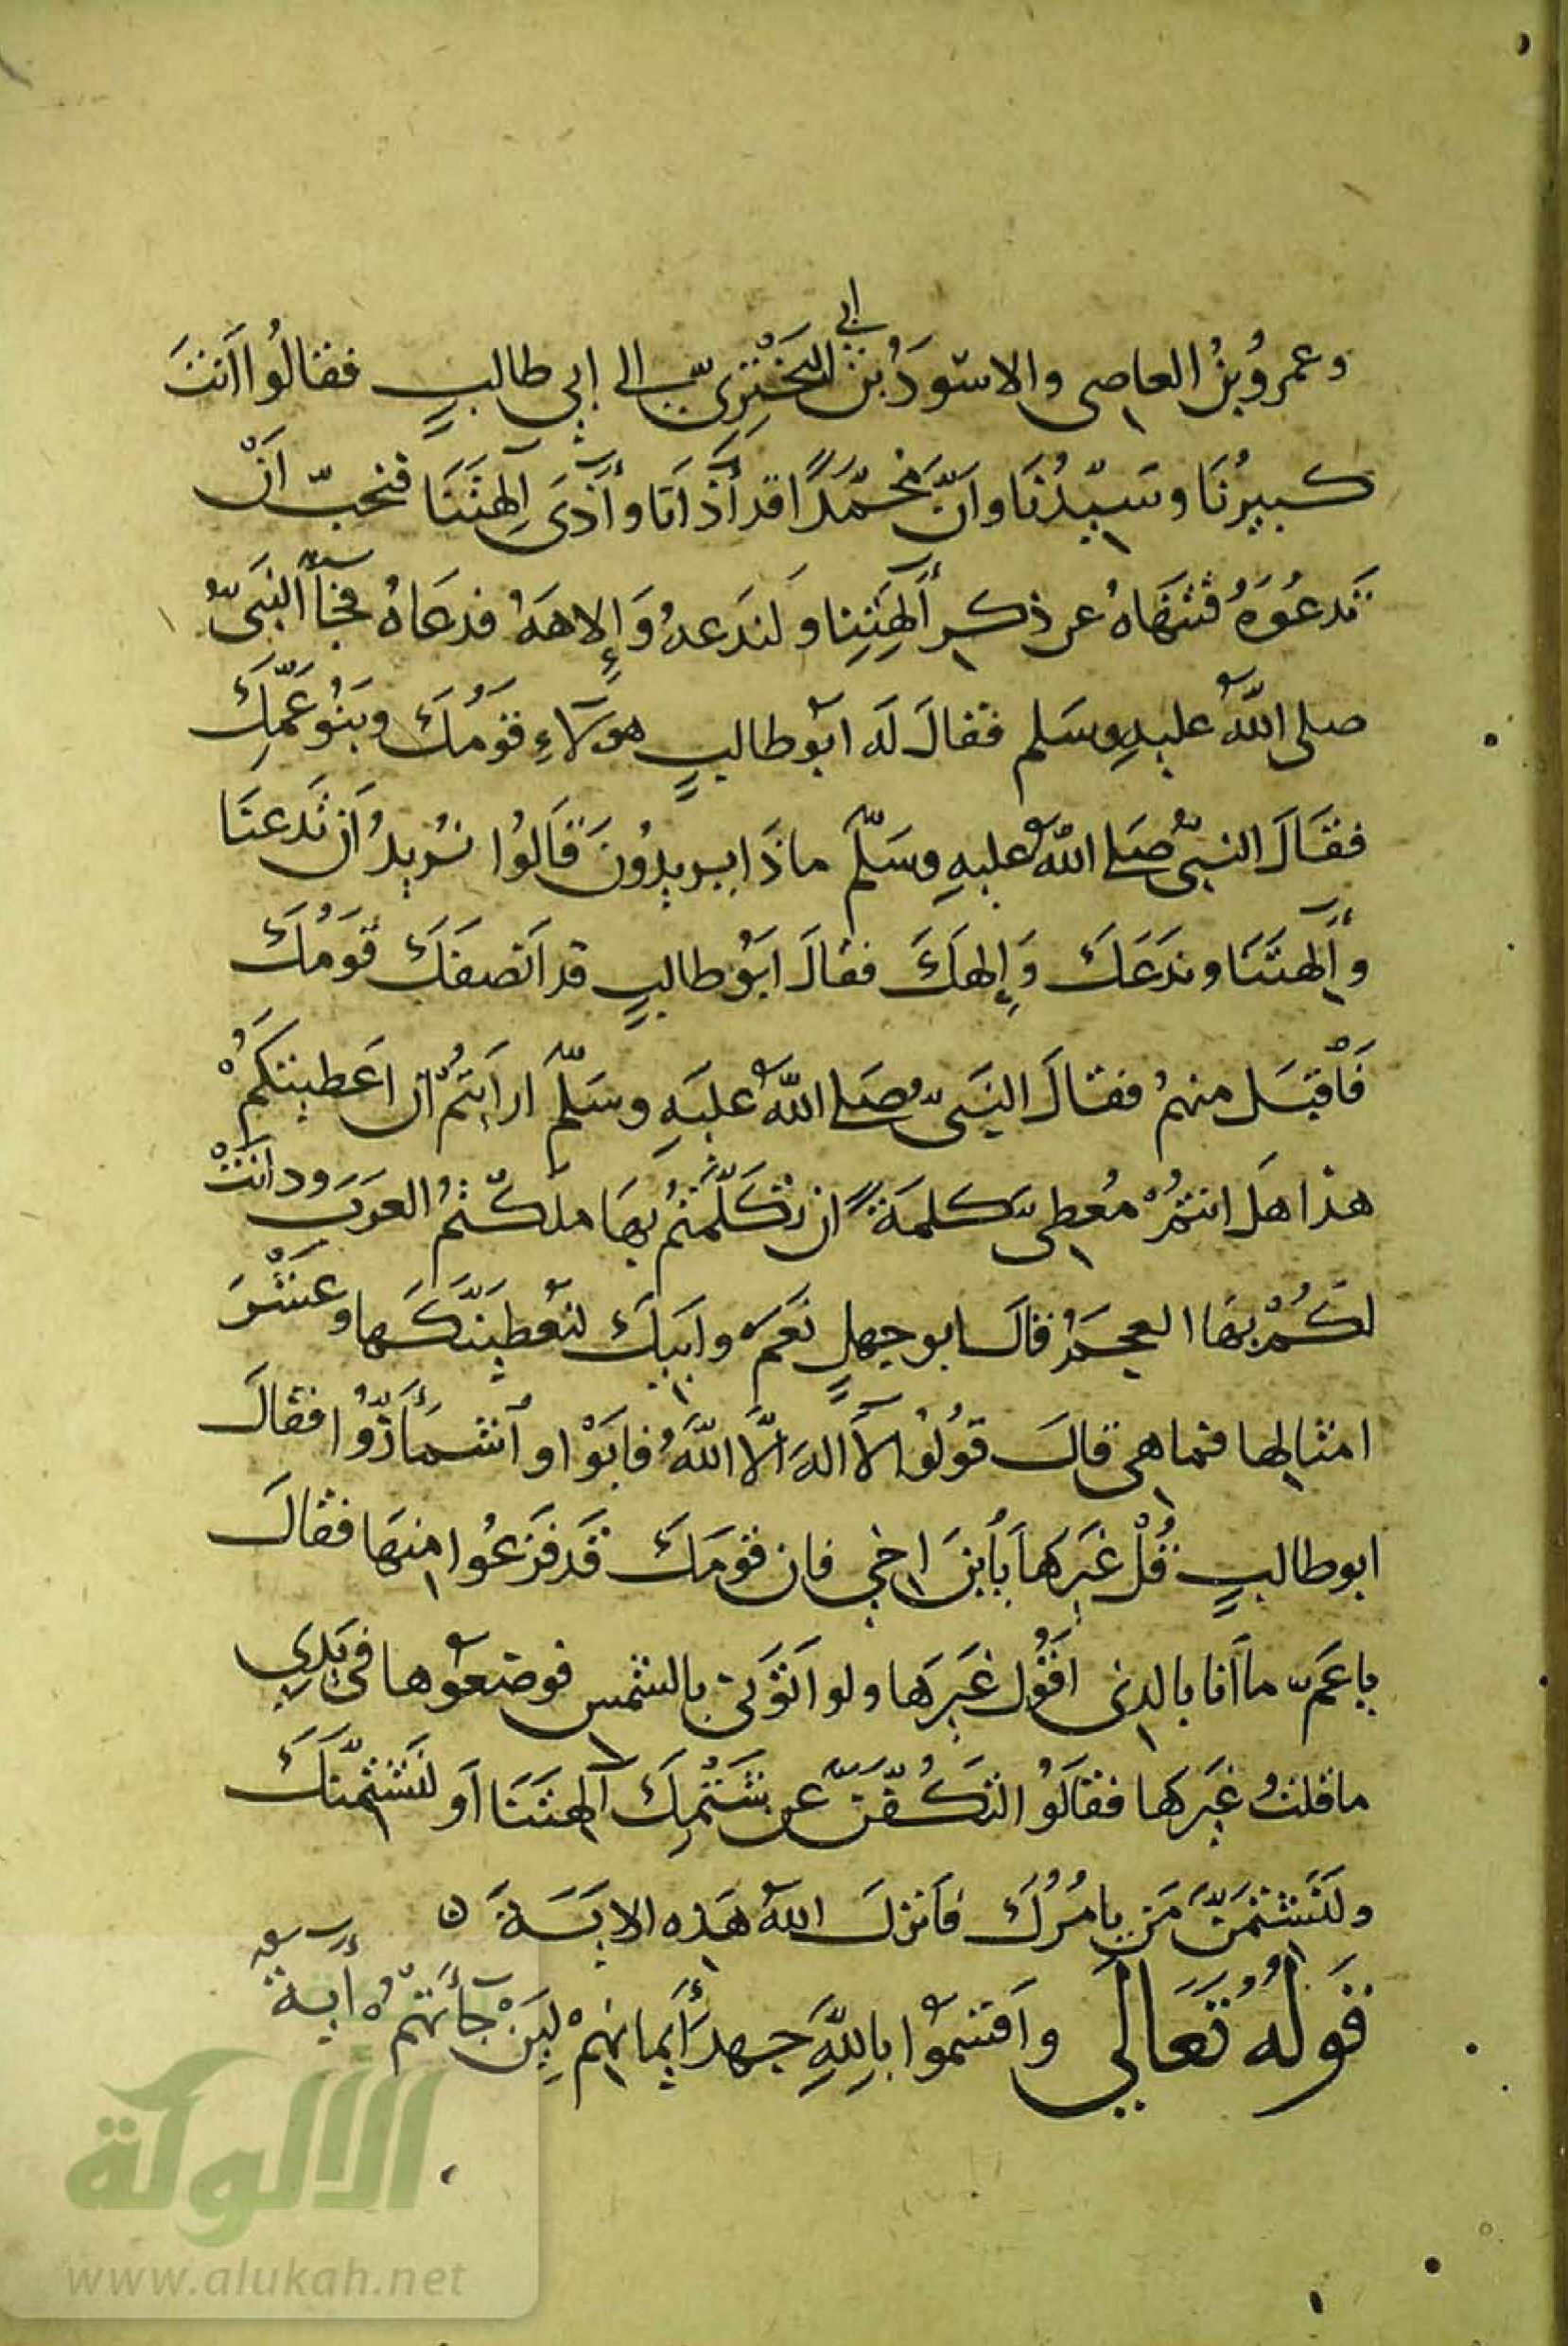 ابي
وعمرُو بنُ العاصي والاسْوَدُ بنُ البَخْتَرِيّ الى ابي طالبٍ فقالُوا اَنتَ
كبيرُنَا وسَيّدُنَا وانّ مُحَمّدًا قد أَذَانَا وأَذَى آلِهتَنَا فنحبّ اَنْ
تَدعُوَهُ فَتَنهَاهُ عن ذكرِ أَلِهَتِنا ولنَدعهُ وَإِلاهَهُ فدعَاهُ فجَآءَ النَبيُّ
صلى اللهُ عليهِ وسَلم فقالَ لَه ابُو طالبٍ هولآءِ قَومُكَ وبَنُو عَمِّكَ
فقَالَ النبيُّ صَلى اللهُ عليهِ وسَلّمَ ماذَا يريدُونَ قَالُوا نُريدُ اَن تَدعنَا
وأَلهتَنَا وندَعَكَ وَإِلهكَ فقالَ ابَوُ طالبٍ قد اَنصفَكَ قَومُكَ
فَاْقبَل منهمُ فقالَ النَبيُّ صَلى اللهُ عليَهِ وسَلّمَ ارايَتُمْ ان اعَطيتكُمْ
هذا هَل انتمُ مُعطِيّ كلمَةً ان تكَلّمتُم بهَا ملكتُم العَرَبَ ودانَتْ
لكُمْ بهَا العجمُ قالَ ابو جهلٍ نَعَم وابَيكَ لنُعطيَنّكَها وعَشْرَ
امثالِها فما هي قالَ قوُلوُا لآ الهَ الاّ اللهُ فابَوْا واشمأَزّوُا فقالَ
ابو طالبٍ قُلْ غَيرَها يَاْبنَ اخي فان قومَكَ قَد فَزعُوا منهَا فقالَ
يا عَمّ ما اَنا بالذي اَقوُل غَيرَها ولو اَتَوني بالشمس فوضعُوها في يَدِي
ما قلتُ غيَرها فقالَوُا لتكُفّنّ عن شَتْمِكَ آلهتَنَا اَو لنَشتمنّكَ
ولنَشتمَنّ مَن يامُرُكَ فاَنزلَ اللهُ هَذه الايَةَ ٥
قَولُهُ تَعَالي واَقسَموُا بِاللهِ جهدَ أَيمانهِمْ لَئِنْ جآءَتهُمْ أَيةٌ
الألوكة
www.alukah.net